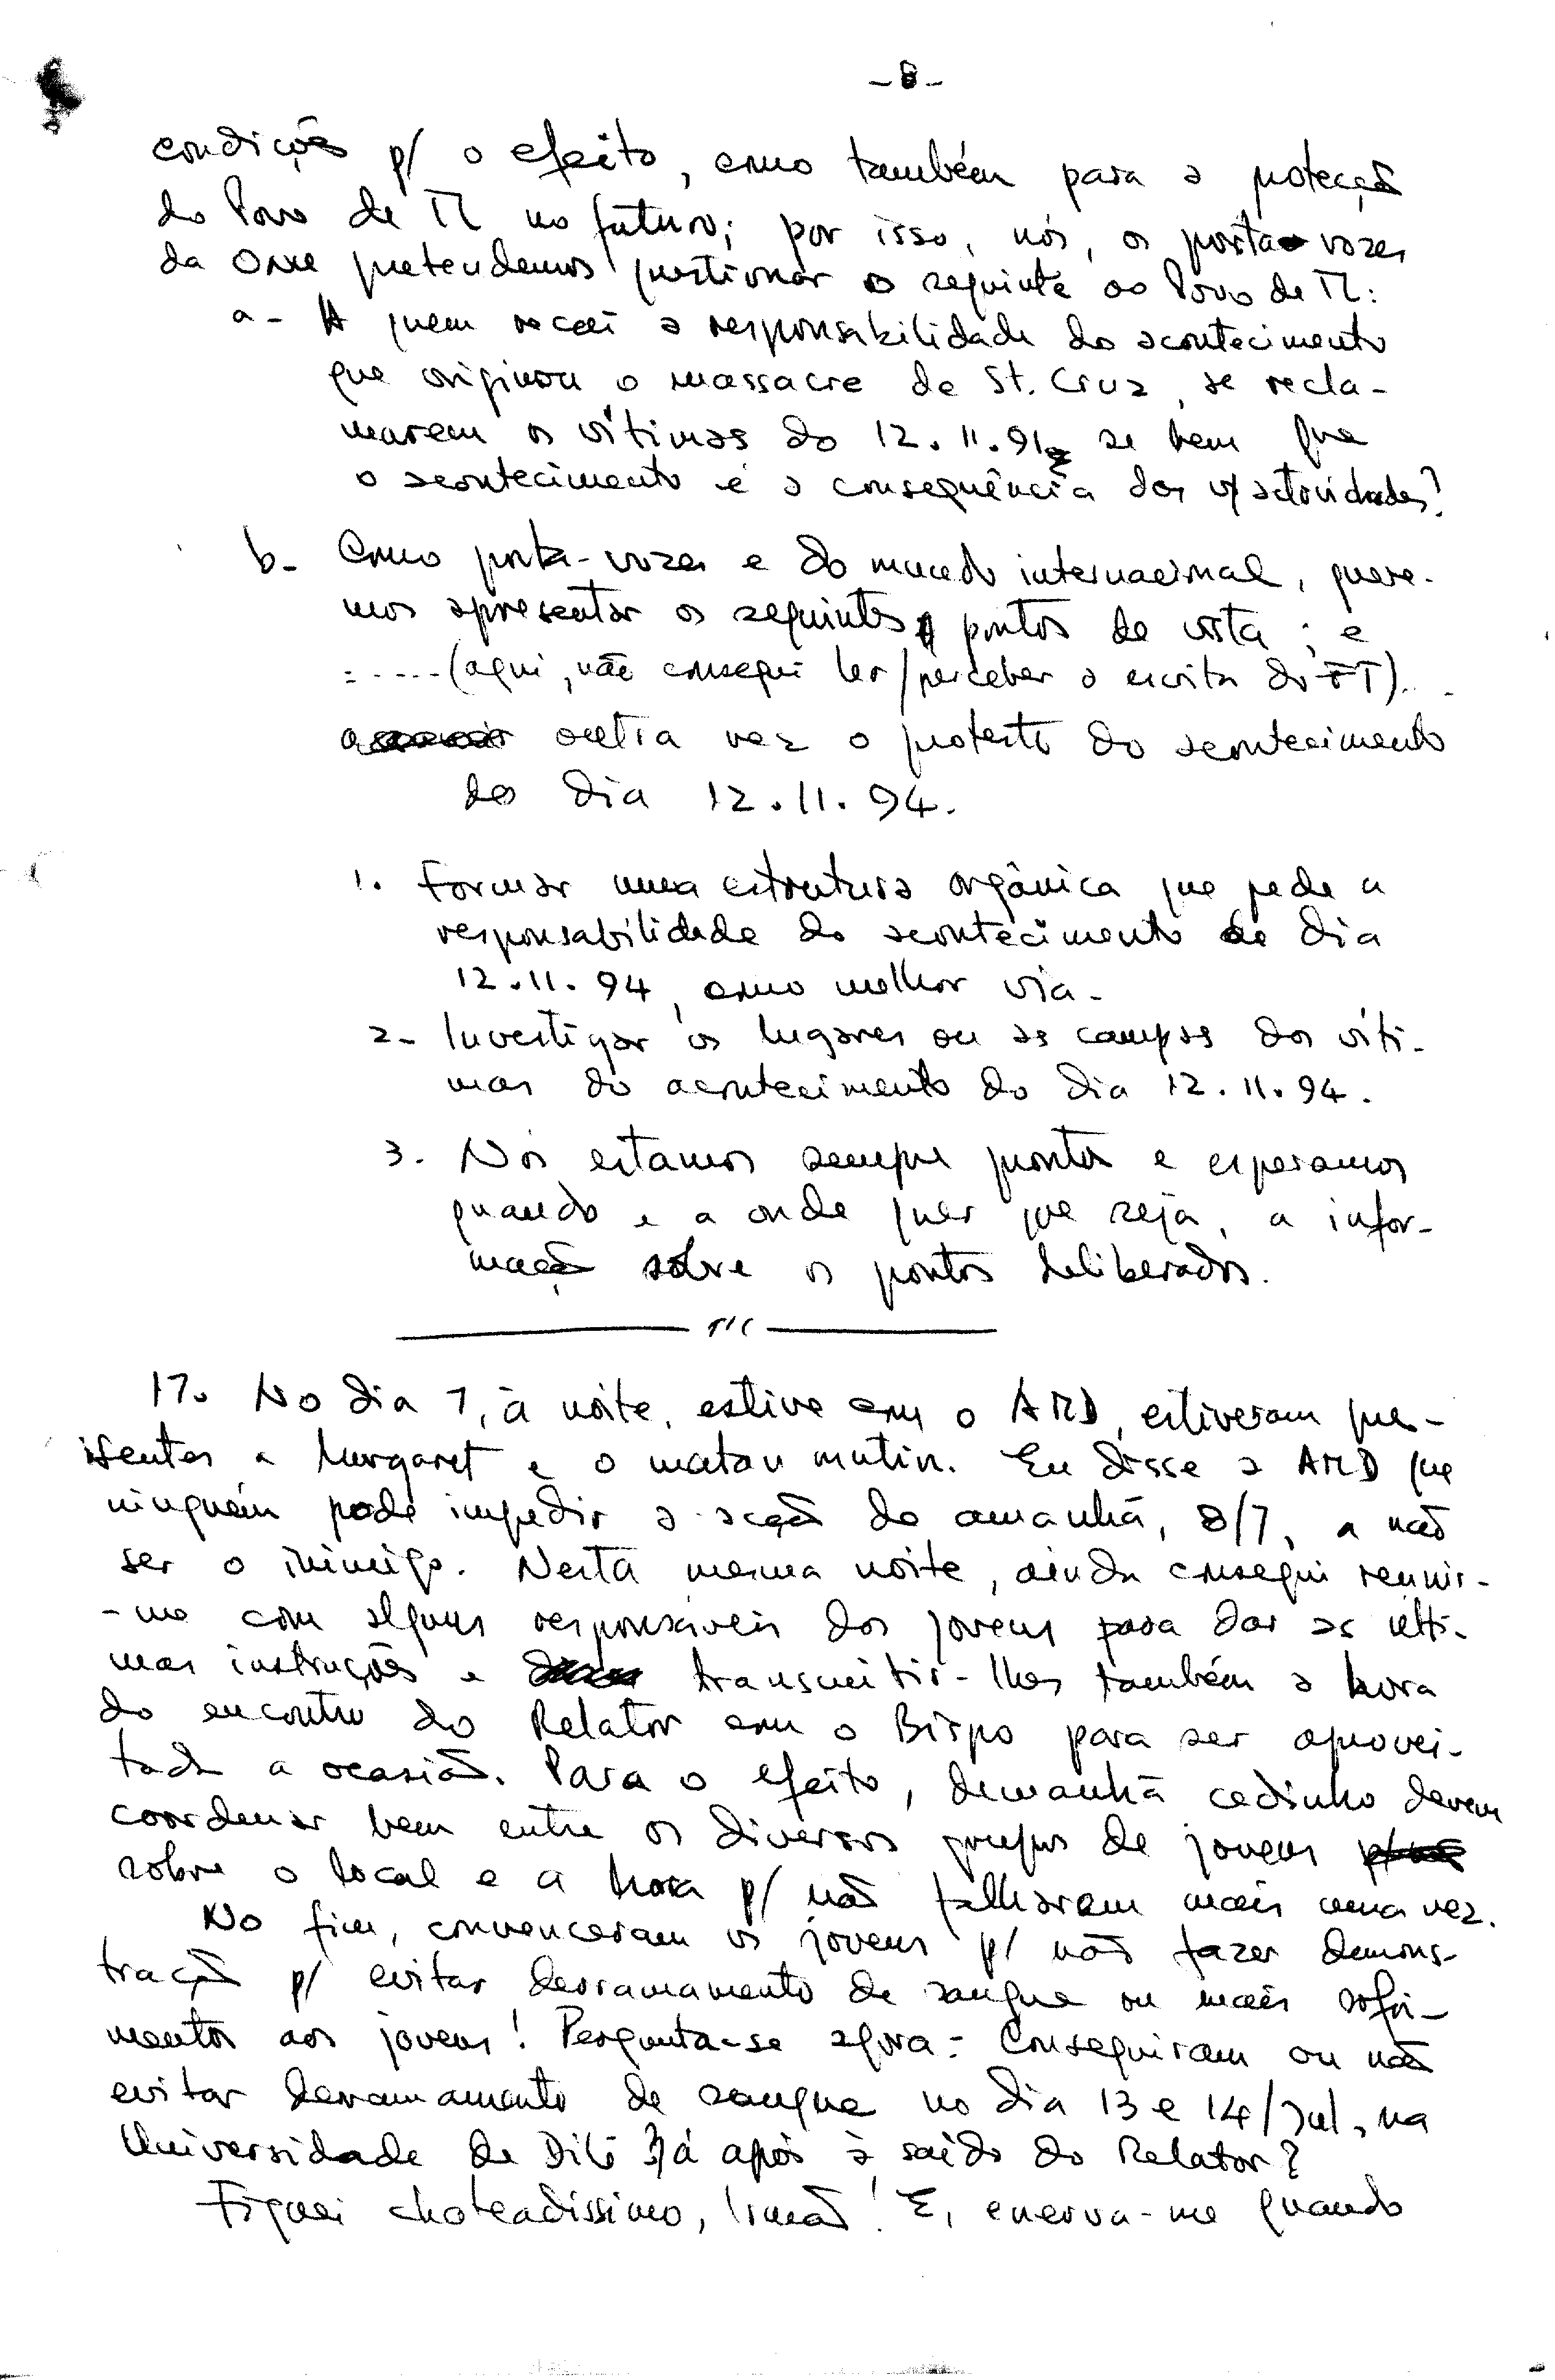 - 8 -
condições p/ o efeito, como também para a proteção
do Povo de TL no futuro; por isso, nós, os porta vozes
da ONU pretendemos questionar o seguinte ao Povo de TL:
a - A quem recai a responsabilidade do acontecimento
que originou o massacre de St. Cruz, se recla-
marem as vítimas do 12.11.91, se bem que
o acontecimento é a consequência das v/ actividades?
b - Como porta-vozes e do mundo internacional, quere-
mos apresentar os seguintes pontos de vista; e
: .....(aqui, não consegui ler/perceber a escrita do FT)...
outra vez o protesto do acontecimento
do dia 12.11.94.
1. Formar uma estrutura orgânica que pede a
responsabilidade do acontecimento de dia
12.11.94, como melhor via.
2 - Investigar os lugares ou as campas das víti-
mas do acontecimento do dia 12.11.94.
3. Nós estamos sempre prontos e esperamos
quando e a onde quer que seja, a infor-
mação sobre os pontos deliberados.
17. No dia 7, à noite, estive com o AMD, estiveram pre-
sentes a Margaret e o matan mutin. Eu disse a AMD que
ninguém pode impedir a acção de amanhã, 8/7, a não
ser o inimigo. Nesta mesma noite, ainda consegui reunir-
-me com alguns responsáveis dos jovens para dar as últi-
mas instruções e transmitir-lhes também a hora
do encontro do Relator com o Bispo para ser aprovei-
tada a ocasião. Para o efeito, demanhã cedinho devem
coordenar bem entre os diversos grupos de jovens
sobre o local e a hora p/ não falharem mais uma vez.
No fim, convenceram os jovens p/ não fazer demons-
tração p/ evitar derramamento de sangue ou mais sofri-
mentos aos jovens! Pergunta-se agora: Conseguiram ou não
evitar derramamento de sangue no dia 13 e 14/Jul, na
Universidade de Dili já após a saída do Relator?
Fiquei choteadíssimo, Irmão! E, enerva-me quando